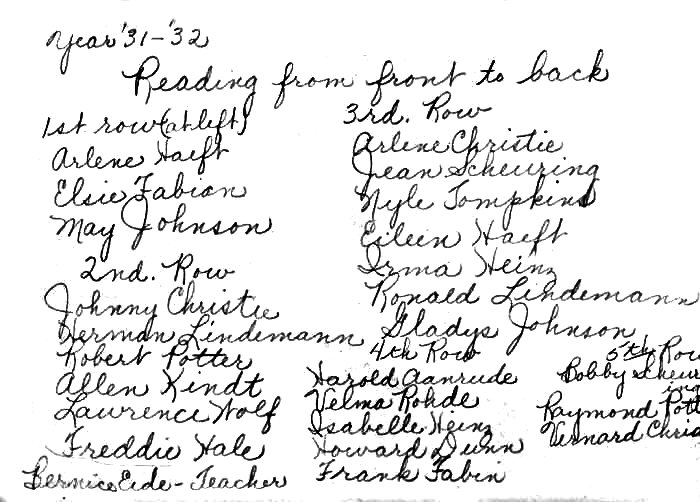 Year '31-'32
Reading from front to back
1st row (at left)
Arlene Haeft
Elsie Fabian
May Johnson
2nd. Row
Johnny Christie
Herman Lindemann
Robert Potter
Allen Kindt
Lawrence Wolf
Freddie Hale
Bernice Eide - Teacher
3rd. Row
Arlene Christie
Jean Scheuring
Nyle Tompkins
Eileen Haeft
Irma Heinz
Ronald Lindemann
Gladys Johnson
4th Row
Harold Aanrude
Velma Rohde
Isabelle Heinz
Howard Dunn
Frank Fabin
5th Row
Bobby Scheuring
Raymond Pott
Vernard Chris